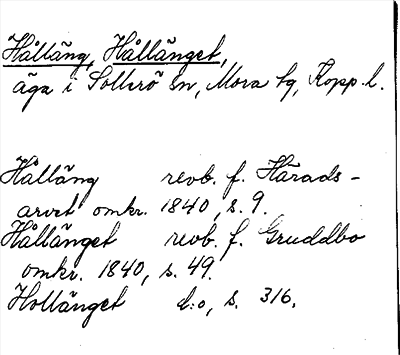 Hålläng, Hållänget,
äga i Sollerö sn, Mora tg, Kopp. l.
Hålläng revb. f. Härads-
arvet omkr. 1840, s. 9.
Hållänget revb. f. Gruddbo
omkr. 1840, s. 49.
Hollänget d:o, s. 316.